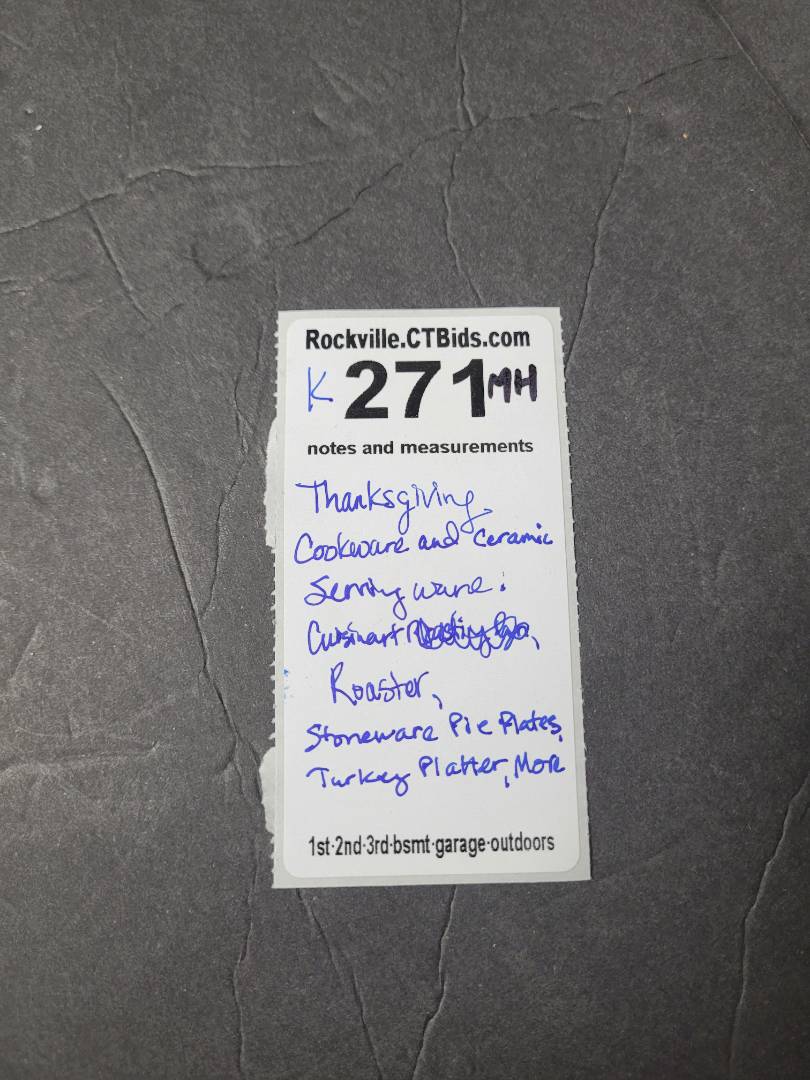 Rockville.CTBids.com
K 271 MH
notes and measurements
Thanksgiving
Cookware and Ceramic
Serving ware:
Cuisinart
Roaster,
Stoneware Pie Plates,
Turkey Platter, More
1st·2nd·3rd·bsmt·garage·outdoors